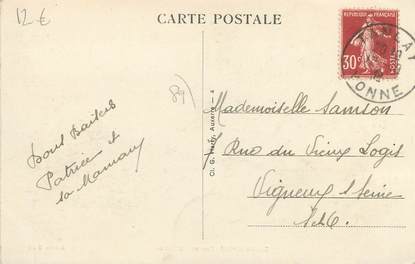 12 €
CARTE POSTALE
RÉPUBLIQUE FRANÇAISE
30c
POSTES
TANLAY
YONNE
89)
Bons baisers
Patrice et
sa Maman
Cl. G. Auxerre - 4
Mademoiselle Samson
7 Rue du Vieux Logis
Vigneux s/ Seine
S&O.